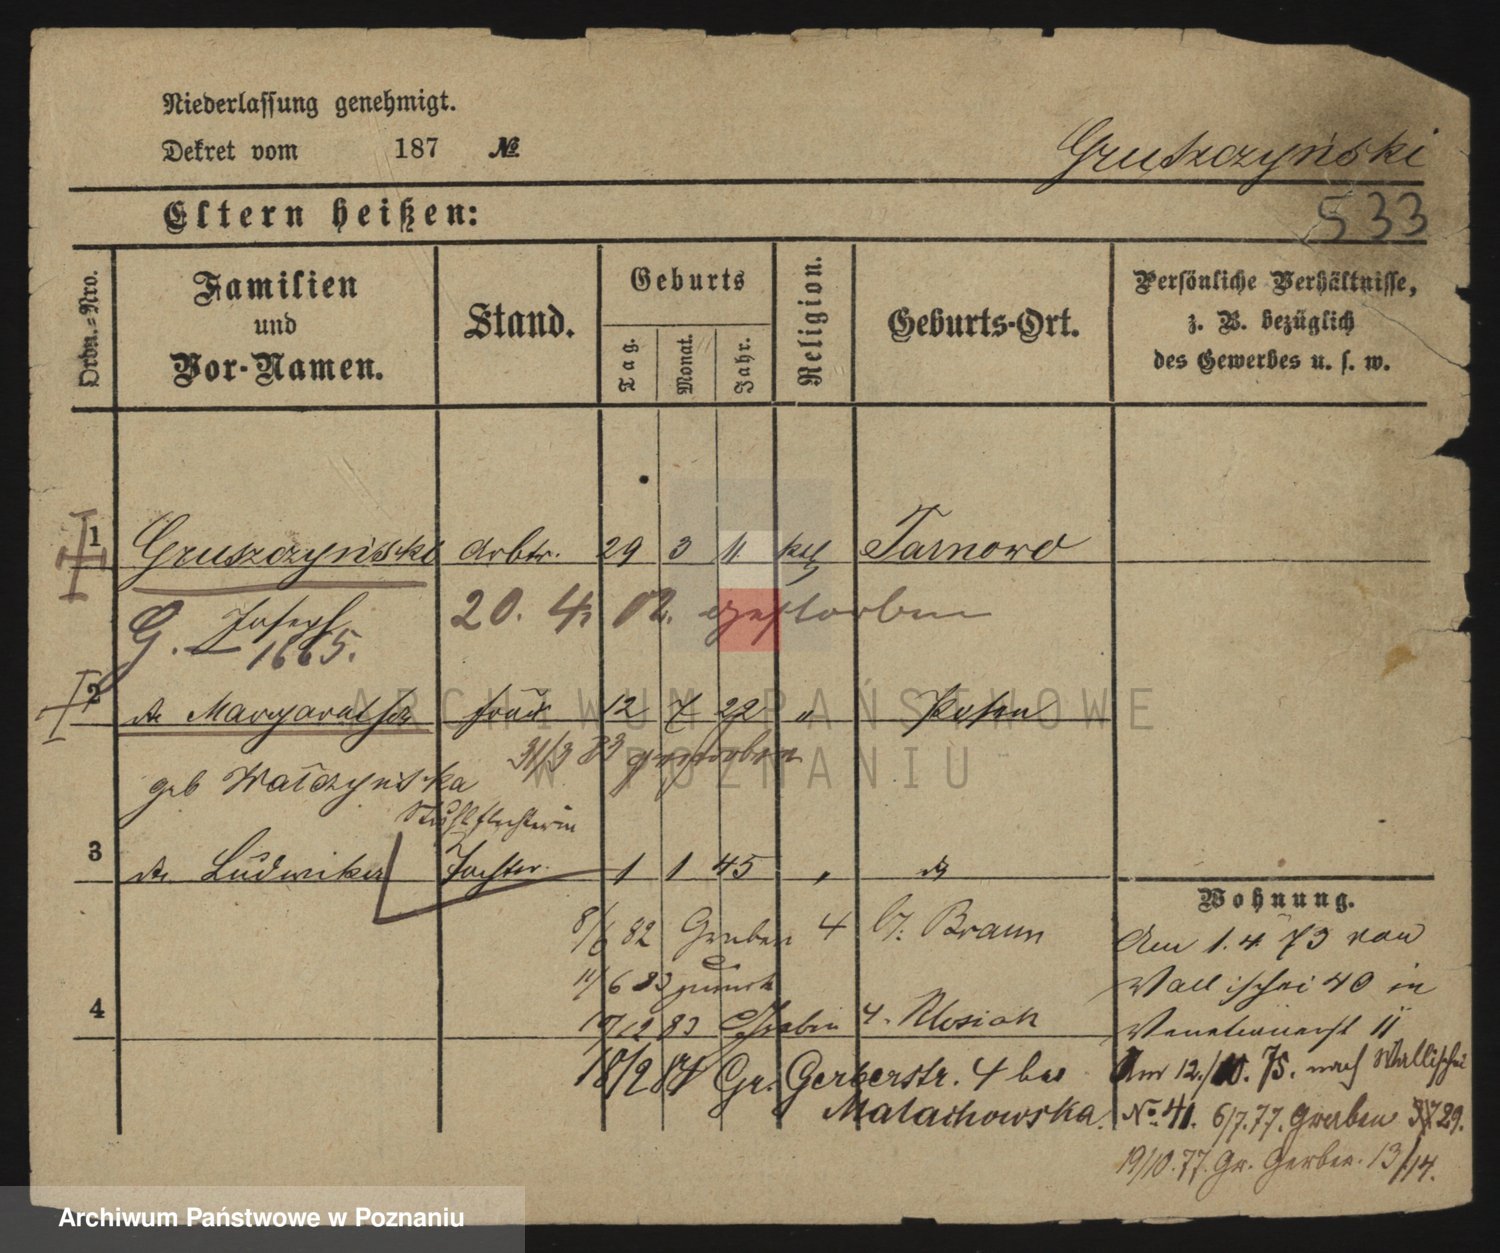 Niederlassung genehmigt.
Dekret vom 187 №
Gruszczyński
533
Eltern heißen:
Ordn.-Nro.
Familien und Vor-Namen.
Stand.
Geburts
Tag.
Monat.
Jahr.
Religion.
Geburts-Ort.
Persönliche Verhältnisse,
z. B. bezüglich
des Gewerbes u. s. w.
1 Gruszczyński Arbtr. 29 3 11 kth Tarnowo
Joseph 20. 4. 02. gestorben
G. 1665.
2 Margarethe Frau 12 7 22 " Posen
31/3 83 gestorben
geb Walczyńska
Stuhlflechterin
3 Ludwika Tochter 1 1 45 "
Wohnung.
8/6 82 Graben 4 b. Braun
Am 1. 4 73 von
14/6 83 zurück
Wallischei 40 in
17/12 83 Graben 4. Klosiak
Venetianerst 11
18/2 84 Gr. Gerberstr. 4 bei
Malachowska.
Am 12./10. 75. nach Wallischei
No. 41. 6/7. 77. Graben 29.
19/10. 77. Gr. Gerber. 13/14.
ARCHIWUM PAŃSTWOWE
W POZNANIU
Archiwum Państwowe w Poznaniu